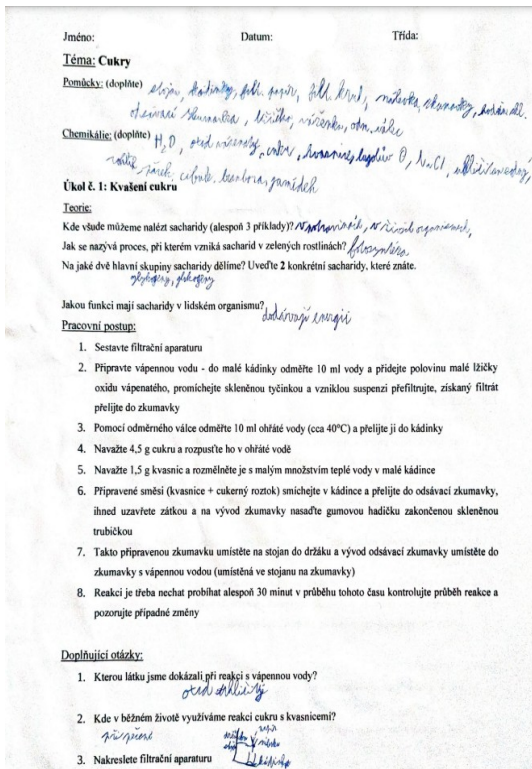 Jméno: Datum: Třída:
Téma: Cukry
Pomůcky: (doplňte) stojan, kádinky, filt. papír, filt. kruh, nálevka, zkumavky,
odsávací zkumavka, lžička, odm. válec
Chemikálie: (doplňte) H₂O, oxid vápenatý, cukr, kvasnice, NaCl,
párek, cibule, brambora, pamídek
Úkol č. 1: Kvašení cukru
Teorie:
Kde všude můžeme nalézt sacharidy (alespoň 3 příklady)? v potravinách, v živých organismech,
Jak se nazývá proces, při kterém vzniká sacharid v zelených rostlinách? fotosyntéza
Na jaké dvě hlavní skupiny sacharidy dělíme? Uveďte 2 konkrétní sacharidy, které znáte.
glykogeny
Jakou funkci mají sacharidy v lidském organismu? dodávají energii
Pracovní postup:
1. Sestavte filtrační aparaturu
2. Připravte vápennou vodu - do malé kádinky odměřte 10 ml vody a přidejte polovinu malé lžičky
oxidu vápenatého, promíchejte skleněnou tyčinkou a vzniklou suspenzi přefiltrujte, získaný filtrát
přelijte do zkumavky
3. Pomocí odměrného válce odměřte 10 ml ohřáté vody (cca 40°C) a přelijte ji do kádinky
4. Navažte 4,5 g cukru a rozpusťte ho v ohřáté vodě
5. Navažte 1,5 g kvasnic a rozmělněte je s malým množstvím teplé vody v malé kádince
6. Připravené směsi (kvasnice + cukerný roztok) smíchejte v kádince a přelijte do odsávací zkumavky,
ihned uzavřete zátkou a na vývod zkumavky nasaďte gumovou hadičku zakončenou skleněnou
trubičkou
7. Takto připravenou zkumavku umístěte na stojan do držáku a vývod odsávací zkumavky umístěte do
zkumavky s vápennou vodou (umístěná ve stojanu na zkumavky)
8. Reakci je třeba nechat probíhat alespoň 30 minut v průběhu tohoto času kontrolujte průběh reakce a
pozorujte případné změny
Doplňující otázky:
1. Kterou látku jsme dokázali při reakci s vápennou vody?
oxid uhličitý
2. Kde v běžném životě využíváme reakci cukru s kvasnicemi?
při pečení
3. Nakreslete filtrační aparaturu
kádinka